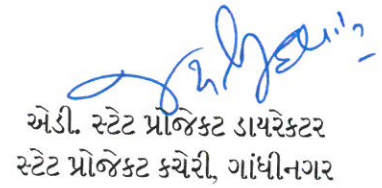 એડી. સ્ટેટ પ્રોજેકટ ડાયરેકટર
સ્ટેટ પ્રોજેકટ કચેરી, ગાંધીનગર